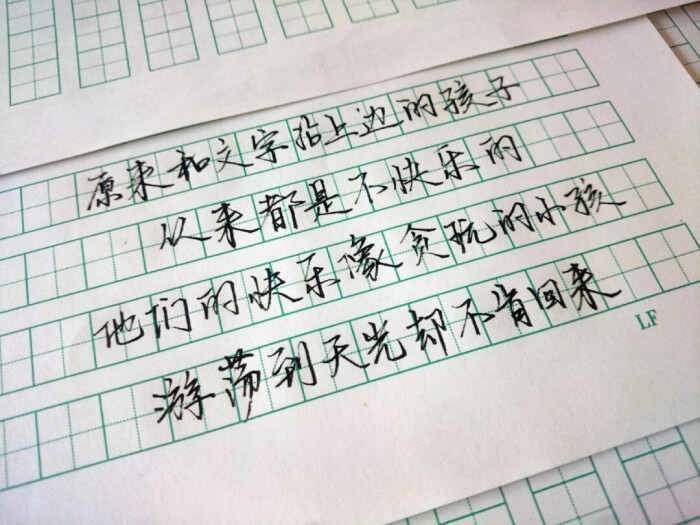 原来和文字沾上边的孩子
从来都是不快乐的
他们的快乐像贪玩的小孩
游荡到天光却不肯回来
LF